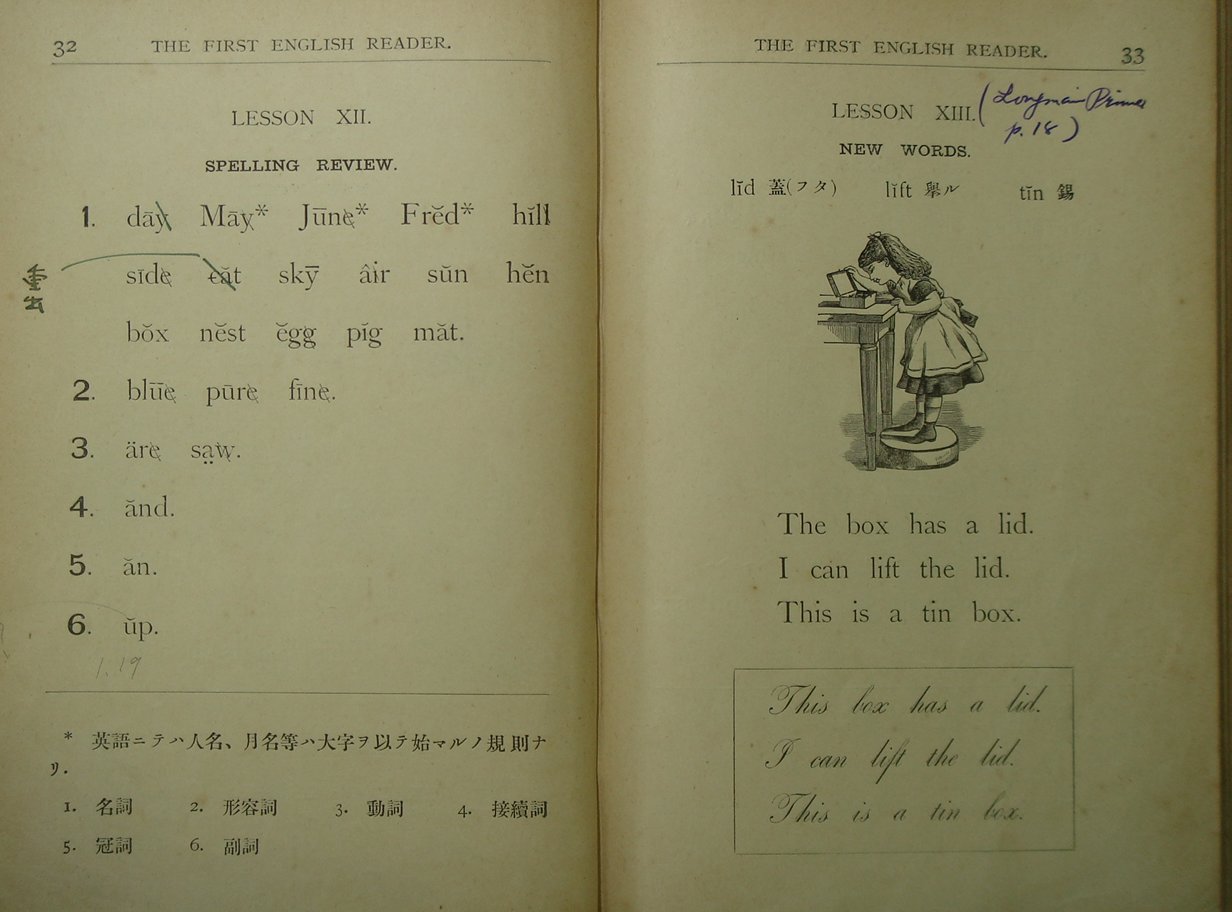 32 THE FIRST ENGLISH READER.
LESSON XII.
SPELLING REVIEW.
1. dāy Māy* Jūne* Frĕd* hĭll
sīde căt skȳ âir sŭn hĕn
重出
bŏx nĕst ĕgg pĭg măt.
2. blūe pūre fīne.
3. äre sa̤w.
4. ănd.
5. ăn.
6. ŭp.
1.19
* 英語ニテハ人名、月名等ハ大字ヲ以テ始マルノ規則ナ
リ.
1. 名詞 2. 形容詞 3. 動詞 4. 接續詞
5. 冠詞 6. 副詞
THE FIRST ENGLISH READER. 33
LESSON XIII. (Longman Primer
p. 18)
NEW WORDS.
lĭd 蓋(フタ) lĭft 擧ル tĭn 錫
The box has a lid.
I can lift the lid.
This is a tin box.
This box has a lid.
I can lift the lid.
This is a tin box.